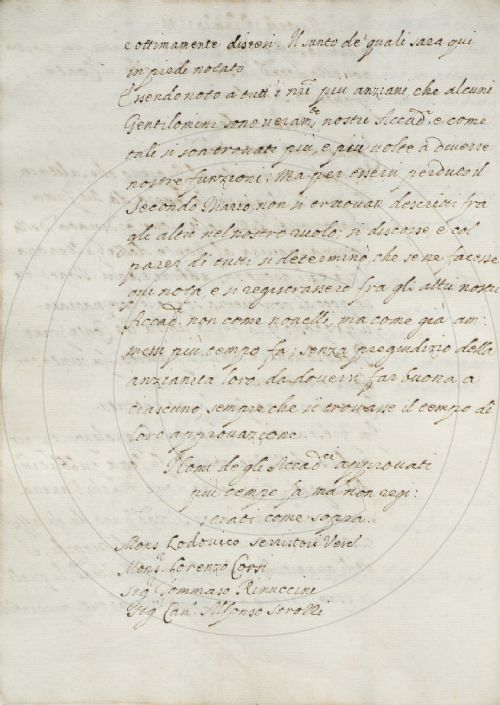 e ottimamente distesi. Il sunto de quali sara qui
in piede notato
Essendo noto a tutti i nri più anziani che alcuni
Gentilomini sono veram.te nostri Accad.i e come
tali si son trovati più, e più volte a diverse
nostre funzioni; Ma per essersi perduto il
Secondo Diario, non si ritrovan descritti fra
gli altri nel nostro ruolo; si discorse e col
parer di tutti si determinò che se ne facesse
qui nota, e si registrassero fra gli altri nostri
Accad.i non come novelli, ma come già am:
messi più tempo fa; senza pregiudizio della
anzianità loro, da doversi far buona a
ciascuno sempre che si trovasse il tempo di
loro approvazione.
Nomi de gli Accad.ci approvati
più tempo fa, ma non regi:
strati come sopra.
Mons.r Lodovico Serristori Vesc.
Mons.r Lorenzo Corsi
Sig.r Tommaso Rinuccini
Sig.r Can.co Alfonso